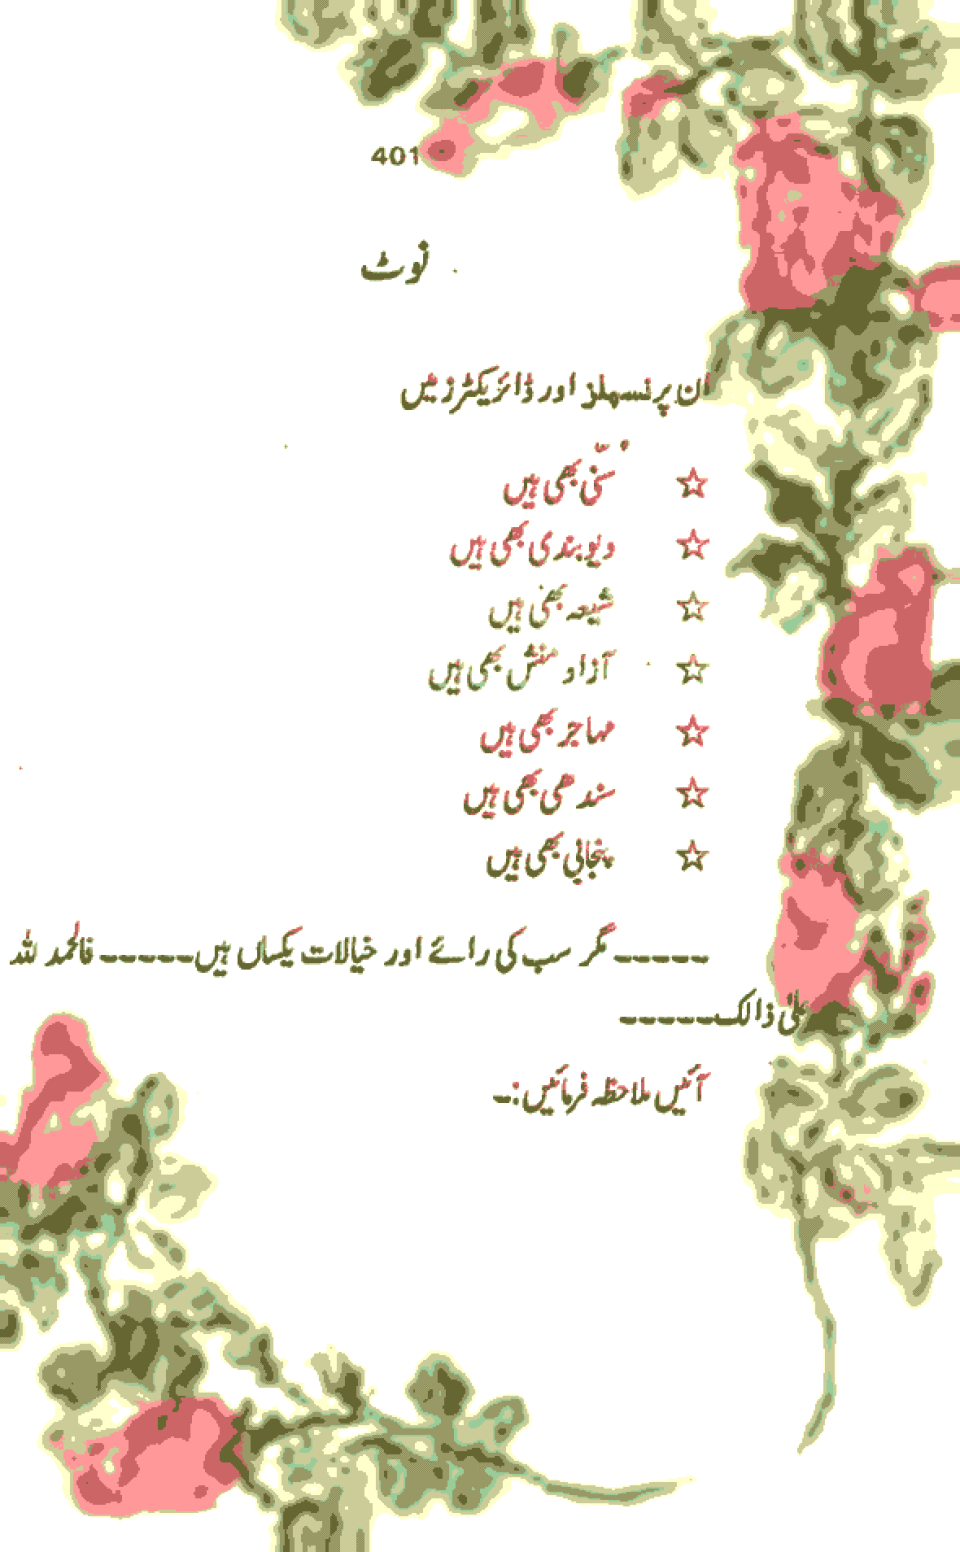 401
نوٹ
ان پرنسپلز اور ڈائریکٹرز میں
☆ سُنّی بھی ہیں
☆ دیوبندی بھی ہیں
☆ شیعہ بھی ہیں
☆ آزاد منش بھی ہیں
☆ مہاجر بھی ہیں
☆ سندھی بھی ہیں
☆ پنجابی بھی ہیں
----- مگر سب کی رائے اور خیالات یکساں ہیں ----- فالحمد للہ
علیٰ ذالک -----
آئیں ملاحظہ فرمائیں :-